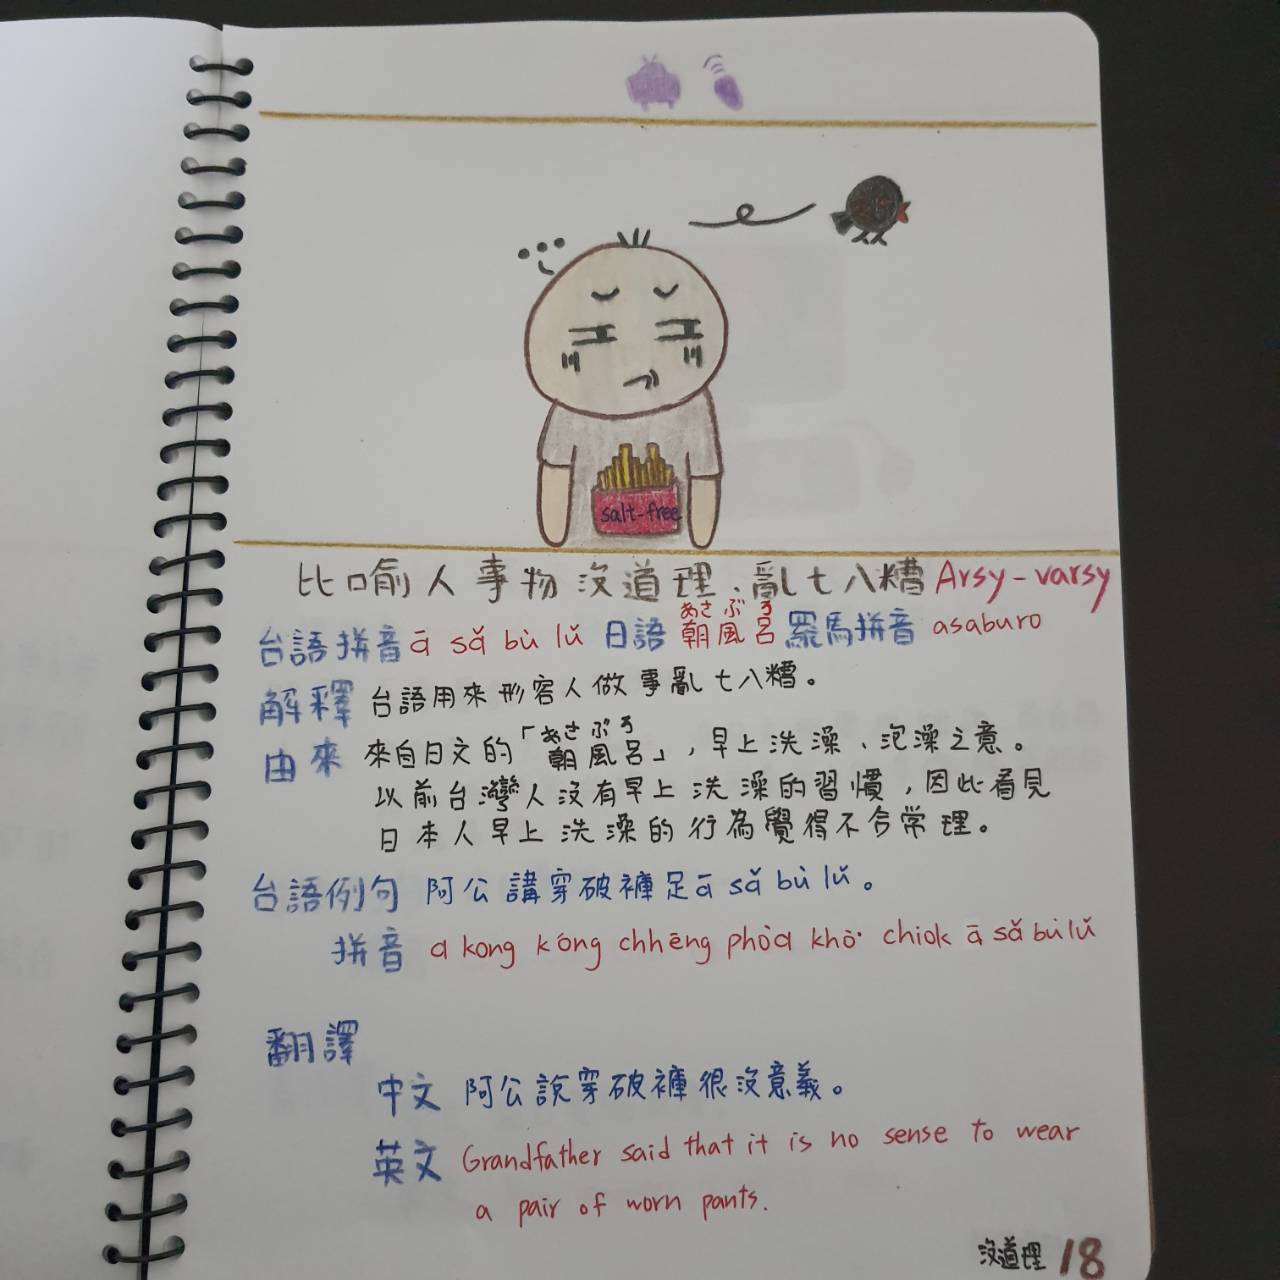 salt-free
比喻人事物沒道理、亂七八糟 Arsy-varsy
台語拼音 ā sǎ bù lǔ 日語 朝風呂 あさぶろ 羅馬拼音 asaburo
解釋 台語用來形容人做事亂七八糟。
由來 來自日文的「朝風呂 あさぶろ」，早上洗澡、泡澡之意。
以前台灣人沒有早上洗澡的習慣，因此看見
日本人早上洗澡的行為覺得不合常理。
台語例句 阿公講穿破褲足ā sǎ bù lǔ。
拼音 a kong kóng chhēng phòa khò͘ chiok ā sǎ bù lǔ
翻譯
中文 阿公說穿破褲很沒意義。
英文 Grandfather said that it is no sense to wear
a pair of worn pants.
沒道理 18